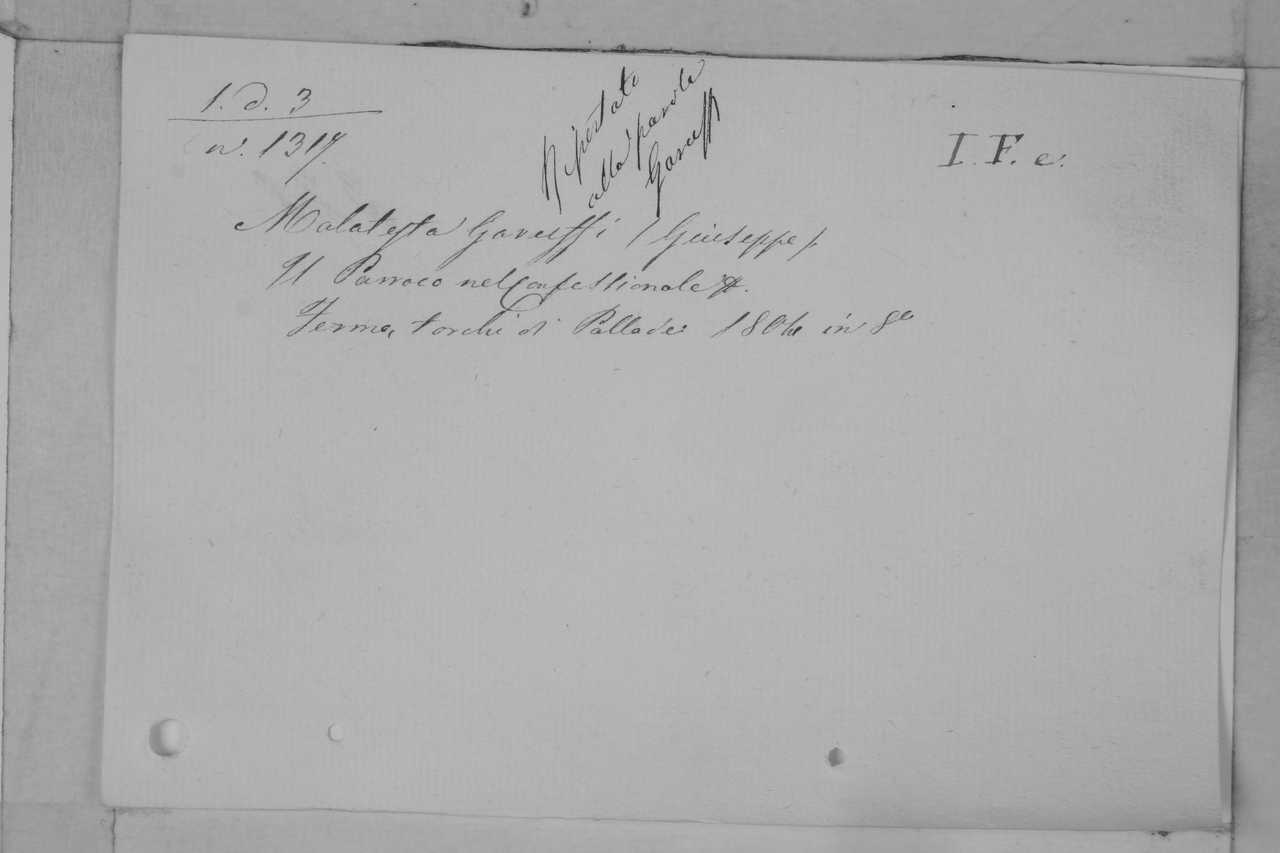 1. d. 3
n. 1317.
Riportato
alla parola
Garuffi
I. F. e.
Malatesta Garuffi (Giuseppe)
Il Parroco nel Confessionale
Fermo, torchi di Pallade 1804 in 8º